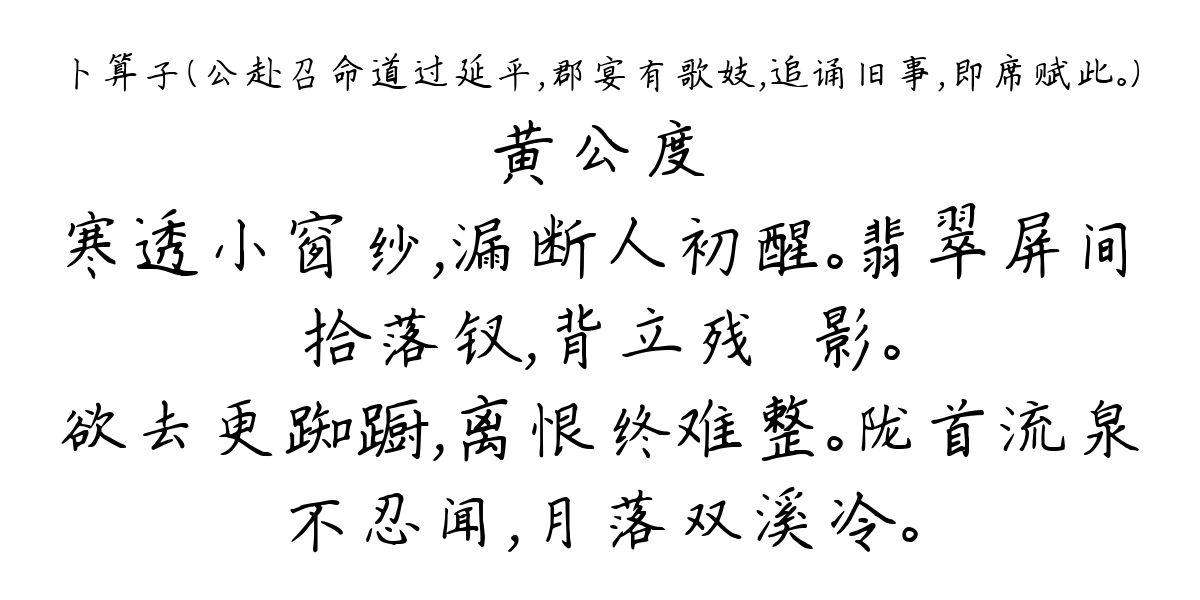 卜算子(公赴召命道过延平,郡宴有歌妓,追诵旧事,即席赋此。)
黄公度
寒透小窗纱,漏断人初醒。翡翠屏间
拾落钗,背立残 影。
欲去更踟蹰,离恨终难整。陇首流泉
不忍闻,月落双溪冷。